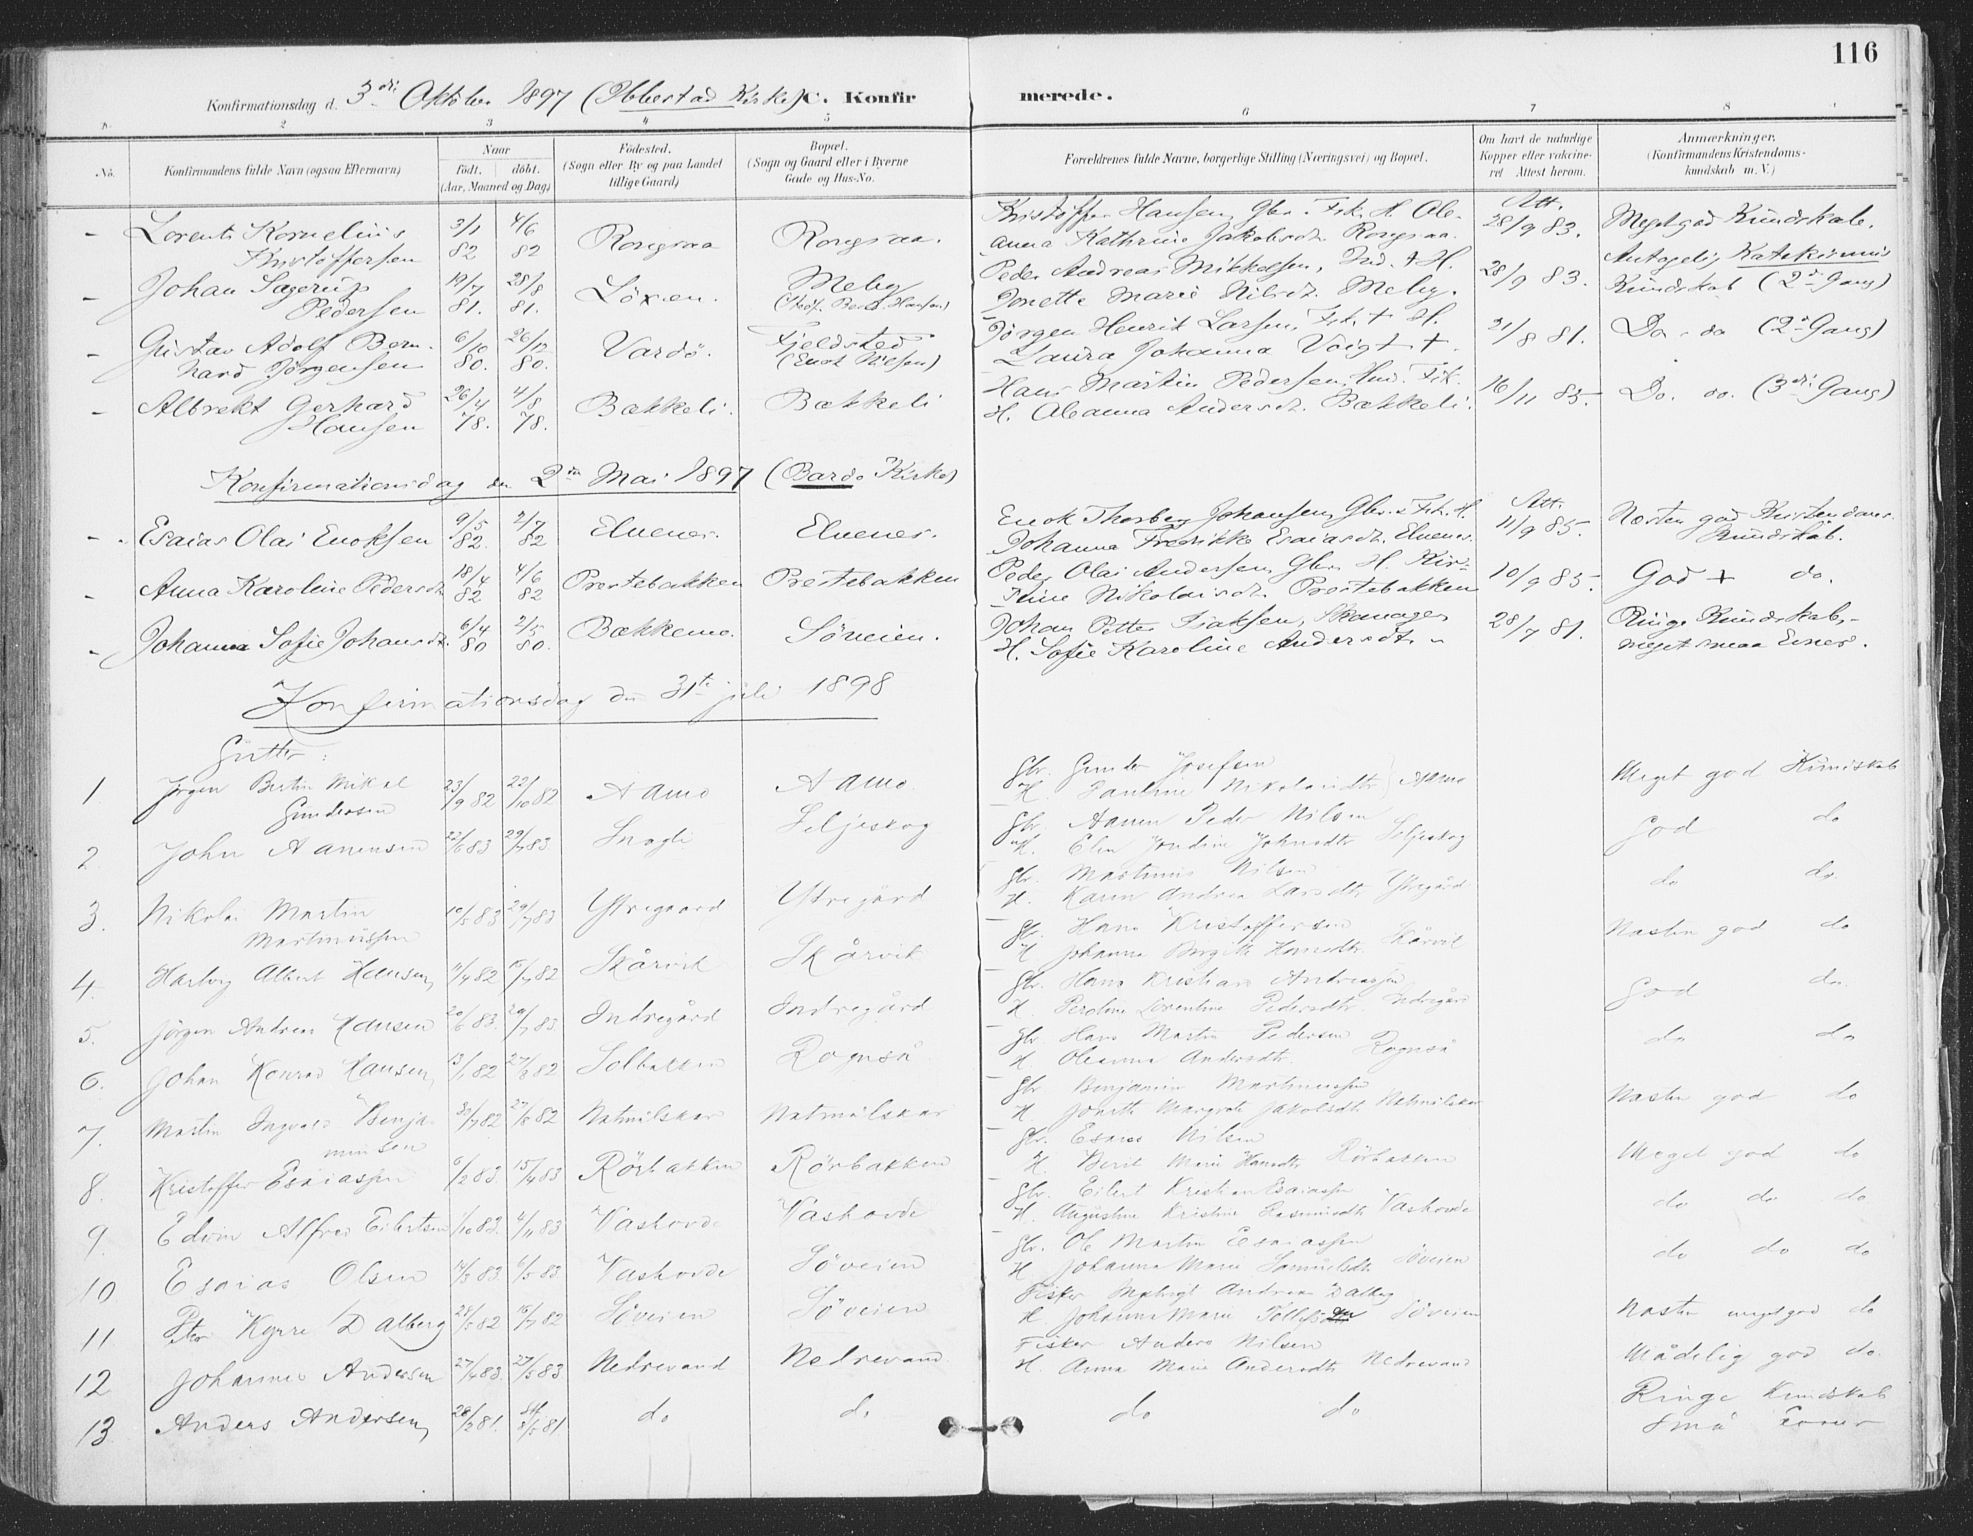 116
Konfirmationsdag d. 3die Oktober 1897 (Ibbestad Kirke) C. Konfir merede.
1. 2 3 4 5 6 7 8
No. Konfirmandens fulde Navn (ogsaa Efternavn) Naar födt. döbt. (Aar, Maaned og Dag) Födested. (Sogn eller By og paa Landet tillige Gaard) Bopæl. (Sogn og Gaard eller i Byerne Gade og Hus-No. Forældrenes fulde Navne, borgerlige Stilling (Næringsvei) og Bopæl. Om havt de naturlige Kopper eller vakcineret Attest herom. Anmærkninger. (Konfirmandens Kristendomskundskab m. V.)
- Lorents Kornelius 3/1 4/6 Rongsaa Rongsaa. Kristoffer Hansen, Gbr. Fsk. H. Ole- Att. 28/9 83. Meget god Kundskab.
Kristoffersen 82 82 anna Kathrine Jakobsdt. Rongsaa.
- Johan Sagerup 19/7 28/8 Löxen. Meby Peder Andreas Mikkelsen, Ind. + H. 28/9 83. Antagelig Katekismus
Pedersen 81. 81. Jonette Marie Nilsdt. Meby. Kundskab (2d Gang)
- Gustav Adolf Bern- 6/10 26/12 Vardö. Fjeldsted Jörgen Henrik Larsen, Fsk. + H. 21/8 81. Do. do (2d Gang)
hard Jörgensen 80. 80. (Enok Nilsen) Laura Johanna Voigt +
- Albrekt Gerhard 26/4 4/8 Bækkeli. Bækkeli Hans Martin Pedersen, Ind. Fsk. 16/11 85. Do. do. (3die Gang)
Hansen 78. 78. H. Oleanna Andersdt. Bækkeli.
Konfirmationsdag den 2den Mai 1897 (Bardo Kirke)
- Esaias Olai Enoksen 9/5 82. 2/7 82 Elvenes. Elvenes. Enok Thorberg Johansen, Gbr. & Fsk. H. Att. 11/9 85. Næsten god Kristendoms-
Johanna Fredrikke Esaiasdt. Elvenes. Kundskab.
- Anna Karoline Pedersdt. 18/4 82 4/6 82 Prestebakken Prestebakken Peder Olai Andersen, Gbr. H. Kir- 10/9 85. God + do.
stine Nikolaisdt. Prestebakken
- Johanna Sofie Johansdt. 6/4 80 2/5 80. Bækkemo. Söveien. Johan Petter Isaksen, Skomager 28/7 81. Ringe Kundskab,
H. Sofie Karoline Andersdt. " meget smaa Evner.
Konfirmationsdag den 31te juli 1898
Gutter:
1 Jörgen Bertin Mikal 23/9 82 22/10 82 Aamo Aamo Gbr. Gunder Josefsen Meget god Kundskab
Gundersen H. Pauline Nikolaisdtr Aamo
2 John Aanensen 22/6 83 29/7 83. Inagli Seljeskog Gbr. Aanen Peder Nilsen God do
H. Elen Jondine Johnsdtr Seljeskog
3. Nikolai Martin 10/5 83 29/7 83 Ytregaard Ytregård Gbr. Martinus Nilsen do do
Martinussen H. Karen Andrea Larsdtr Ytregård
4. Hartvig Albert Hansen 11/4 82 16/7 82 Skårvik Skårvik Gbr. Hans Kristoffersen Næsten god do
H Johanna Birgitte Hansdtr. Skårvik
5. Jörgen Andreas Hansen 20/6 83. 29/7 83 Indregård Indregård Gbr. Hans Kristian Andreassen God do.
H. Peroline Lorentine Pedersdtr. Indregård
6. Johan Konrad Hansen 13/1 82 27/8 82 Solbakken Rognså Gbr. Hans Martin Pedersen do do
H Oleanna Andersdtr. Rognså
7. Martin Ingvald Benja- 30/7 82 27/8 82 Natmålskar Natmålskar Gbr. Benjamin Martinussen Næsten god do
minsen H Jonette Margrete Jakobsdtr Natmålskar
8. Kristoffer Esaiassen 6/2 83. 15/4 83 Rörbakken Rörbakken Gbr. Esaias Nilsen Meget god do
H. Berit Marie Hansdtr Rörbakken
9. Edvin Alfred Eilertsen 1/10 82. 4/11 83 Vashovde Vashovde Gbr. Eilert Kristian Esaiassen do do do
H. Augustine Kristine Rasmusdtr Vashovde
10 Esaias Olsen 14/3 83. 6/5 83. Vashovde Söveien Gbr. Ole Martin Esaiassen do do do
H Johanna Marie Samuelsdtr Söveien
11. Peter Kyrre Dalberg 28/5 82 16/7 82 Söveien Söveien Fisker Andreas Dalberg Næsten meget god do
H. Johanna Marie Söveien
12 Johannes Andersen 27/4 83. 27/5 83 Nedrevand Nedrevand Fisker Anders Nilsen Mådelig god do.
H. Anna Marie Andersdtr Nedrevand
13 Anders Andersen 28/2 81. 81 do do do do Ringe Kundskab
Små Evner